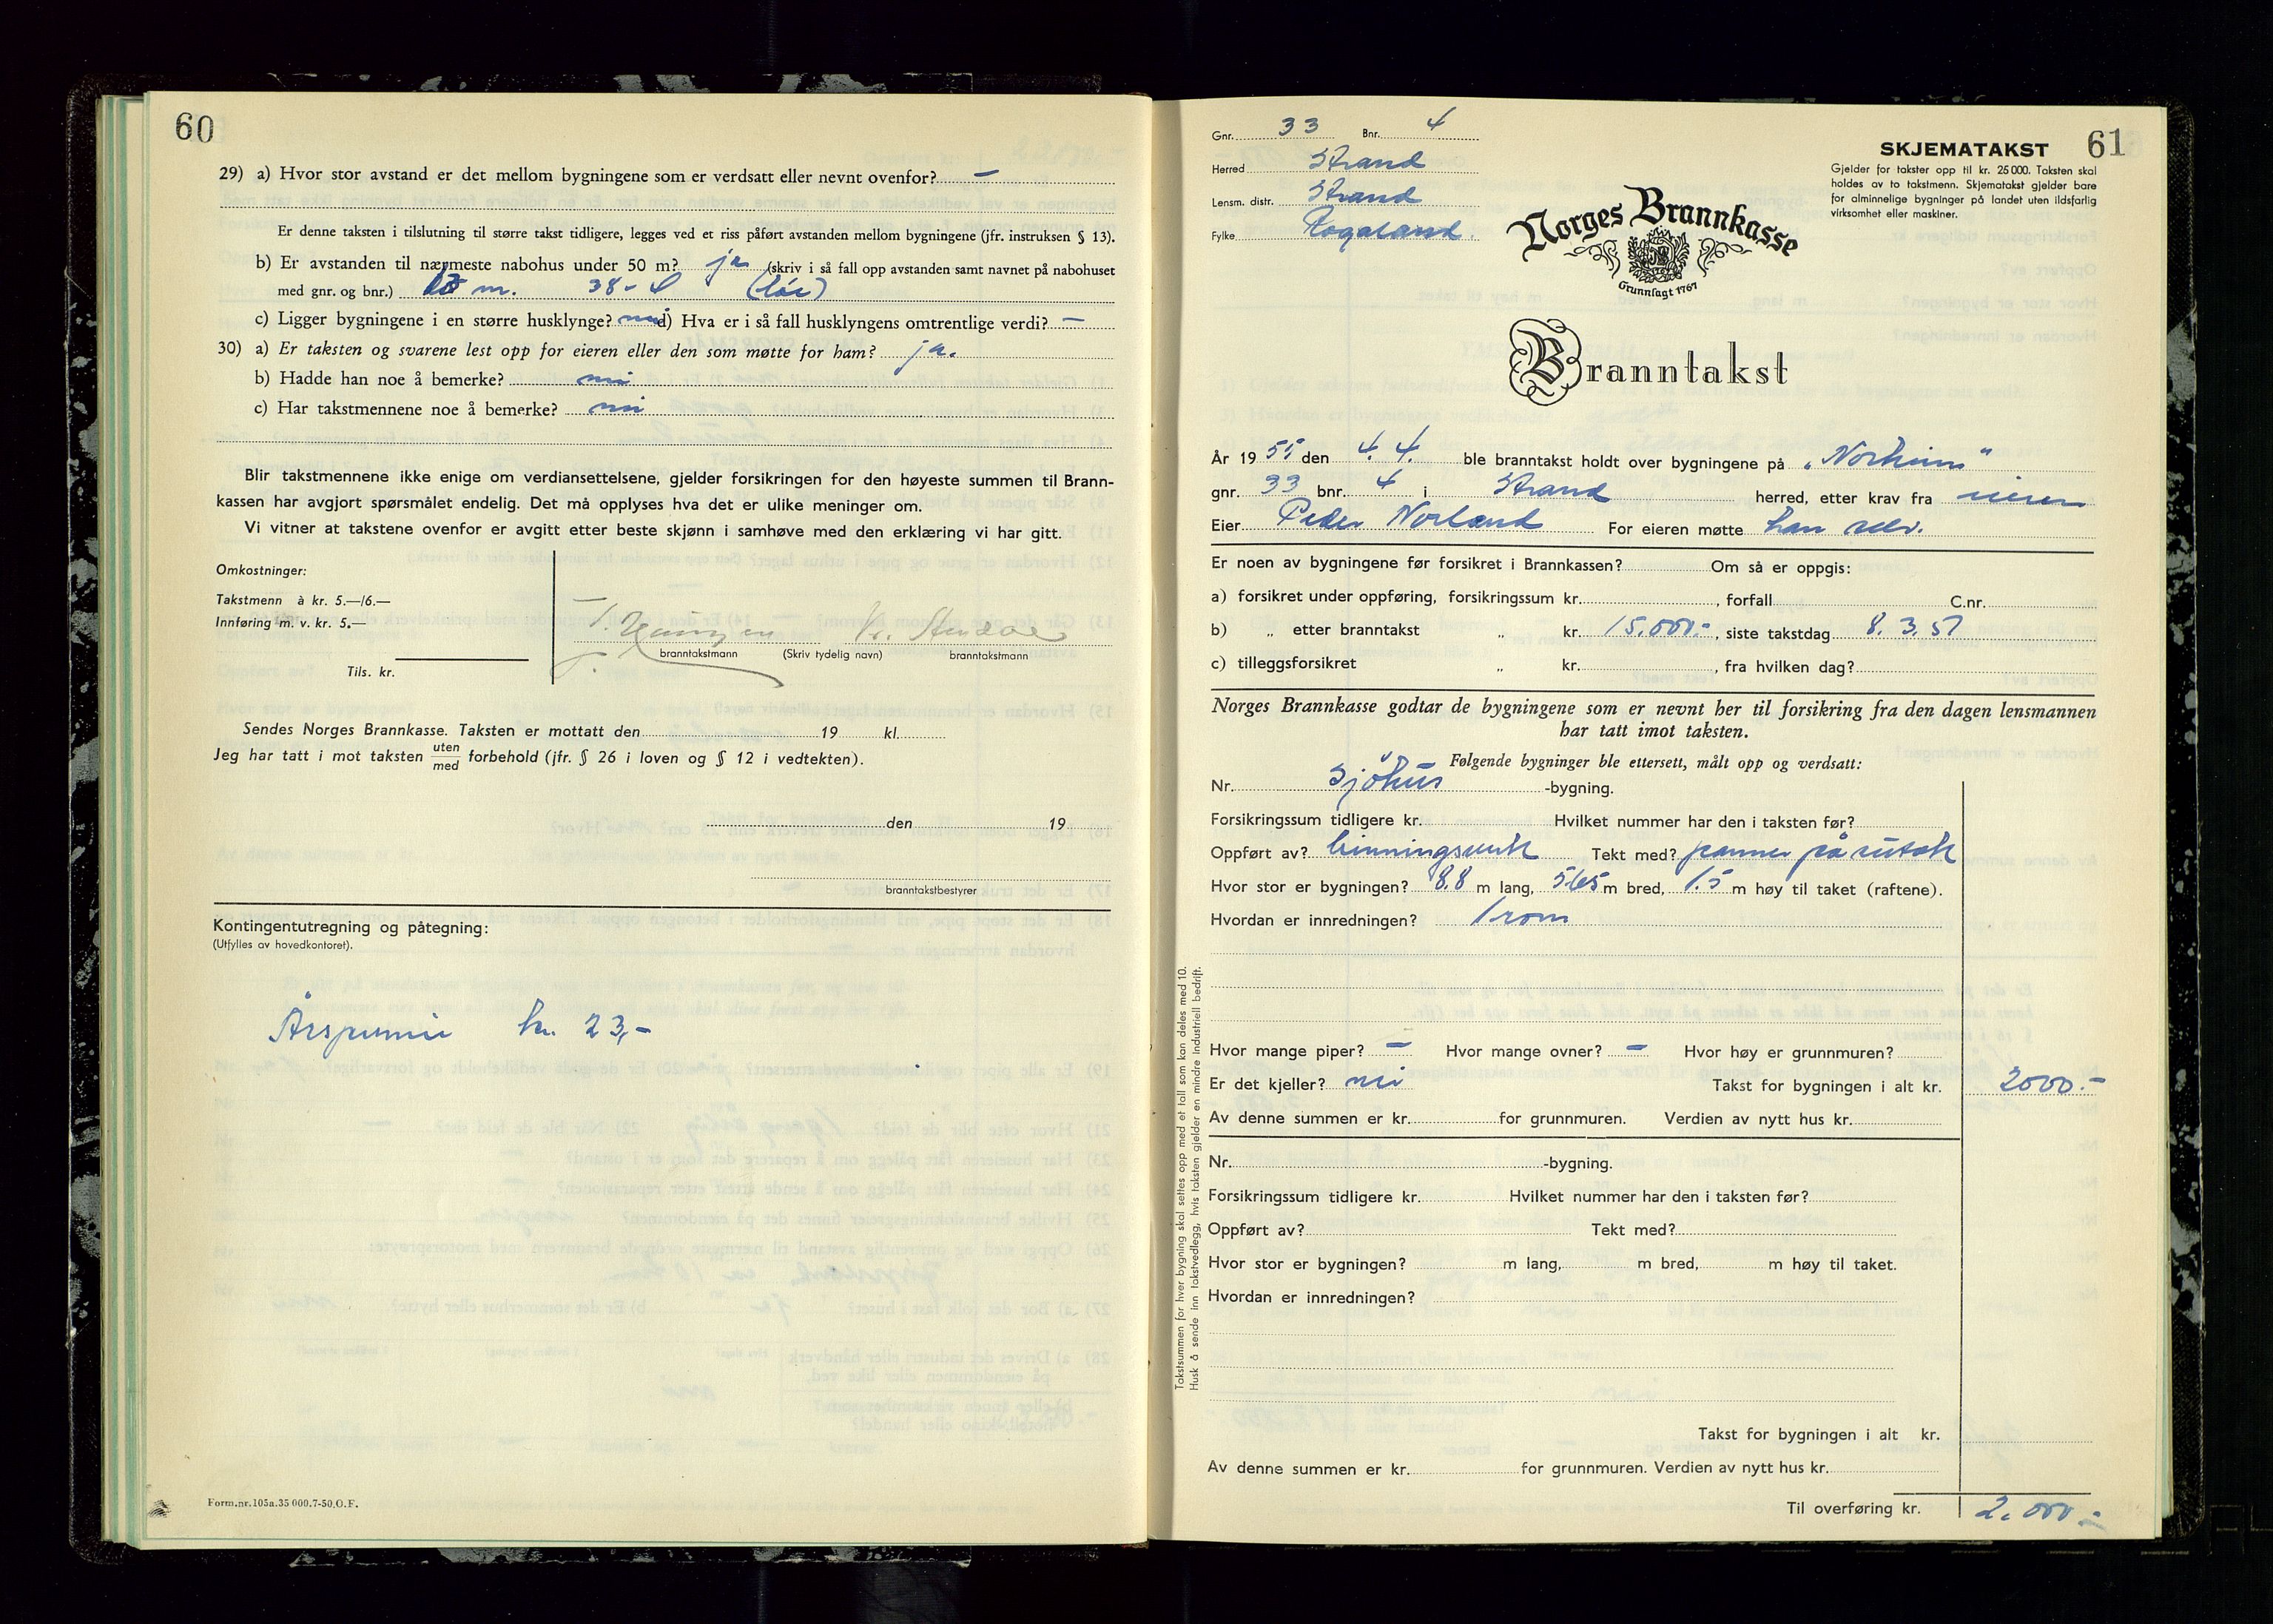 60
29) a) Hvor stor avstand er det mellom bygningene som er verdsatt eller nevnt ovenfor? —
Er denne taksten i tilslutning til større takst tidligere, legges ved et riss påført avstanden mellom bygningene (jfr. instruksen § 13).
b) Er avstanden til nærmeste nabohus under 50 m? ja (skriv i så fall opp avstanden samt navnet på nabohuset
med gnr. og bnr.) m. 38-4 (löe)
c) Ligger bygningene i en større husklynge? nei d) Hva er i så fall husklyngens omtrentlige verdi? —
30) a) Er taksten og svarene lest opp for eieren eller den som møtte for ham? ja.
b) Hadde han noe å bemerke? nei
c) Har takstmennene noe å bemerke? nei
Blir takstmennene ikke enige om verdiansettelsene, gjelder forsikringen for den høyeste summen til Brann-
kassen har avgjort spørsmålet endelig. Det må opplyses hva det er ulike meninger om.
Vi vitner at takstene ovenfor er avgitt etter beste skjønn i samhøve med den erklæring vi har gitt.
Omkostninger:
Takstmenn à kr. 5.—/6.—
Innføring m. v. kr. 5.—
Tils. kr.
branntakstmann (Skriv tydelig navn) branntakstmann
Sendes Norges Brannkasse. Taksten er mottatt den 19 kl.
Jeg har tatt i mot taksten uten/med forbehold (jfr. § 26 i loven og § 12 i vedtekten).
den 19
branntakstbestyrer
Kontingentutregning og påtegning:
(Utfylles av hovedkontoret).
Årspremie kr. 23,-
Form.nr.105a.35 000.7-50.O.F.
61
Gnr. 33 Bnr. 4
Herred Strand
Lensm. distr. Strand
Fylke Rogaland.
SKJEMATAKST
Gjelder for takster opp til kr. 25 000. Taksten skal
holdes av to takstmenn. Skjematakst gjelder bare
for alminnelige bygninger på landet uten ildsfarlig
virksomhet eller maskiner.
Norges Brannkasse
Grunnlagt 1767
Branntakst
År 1955 den 4.4. ble branntakst holdt over bygningene på „Norheim"
gnr. 33 bnr. 4 i Strand herred, etter krav fra eieren
Eier Peder Norland For eieren møtte han selv.
Er noen av bygningene før forsikret i Brannkassen? Om så er oppgis:
a) forsikret under oppføring, forsikringssum kr. , forfall C.nr.
b) „ etter branntakst „ kr. 15.000.- , siste takstdag 8.3.51
c) tilleggsforsikret „ kr. , fra hvilken dag?
Norges Brannkasse godtar de bygningene som er nevnt her til forsikring fra den dagen lensmannen
har tatt imot taksten.
Følgende bygninger ble ettersett, målt opp og verdsatt:
Nr. Sjöhus -bygning.
Forsikringssum tidligere kr. Hvilket nummer har den i taksten før?
Oppført av? binningsverk Tekt med? panner på sutak
Hvor stor er bygningen? 8.8 m lang, 5.65 m bred, 1.5 m høy til taket (raftene).
Hvordan er innredningen? 1 rom
Hvor mange piper? — Hvor mange ovner? — Hvor høy er grunnmuren?
Er det kjeller? nei Takst for bygningen i alt kr. 2000.-
Av denne summen er kr. for grunnmuren. Verdien av nytt hus kr.
Nr. -bygning.
Forsikringssum tidligere kr. Hvilket nummer har den i taksten før?
Oppført av? Tekt med?
Hvor stor er bygningen? m lang, m bred, m høy til taket.
Hvordan er innredningen?
Takst for bygningen i alt kr.
Av denne summen er kr. for grunnmuren. Verdien av nytt hus kr.
Til overføring kr. 2.000.-
Takstsummen for hver bygning skal settes opp med et tall som kan deles med 10.
Husk å sende inn takstvedlegg, hvis taksten gjelder en mindre industriell bedrift.